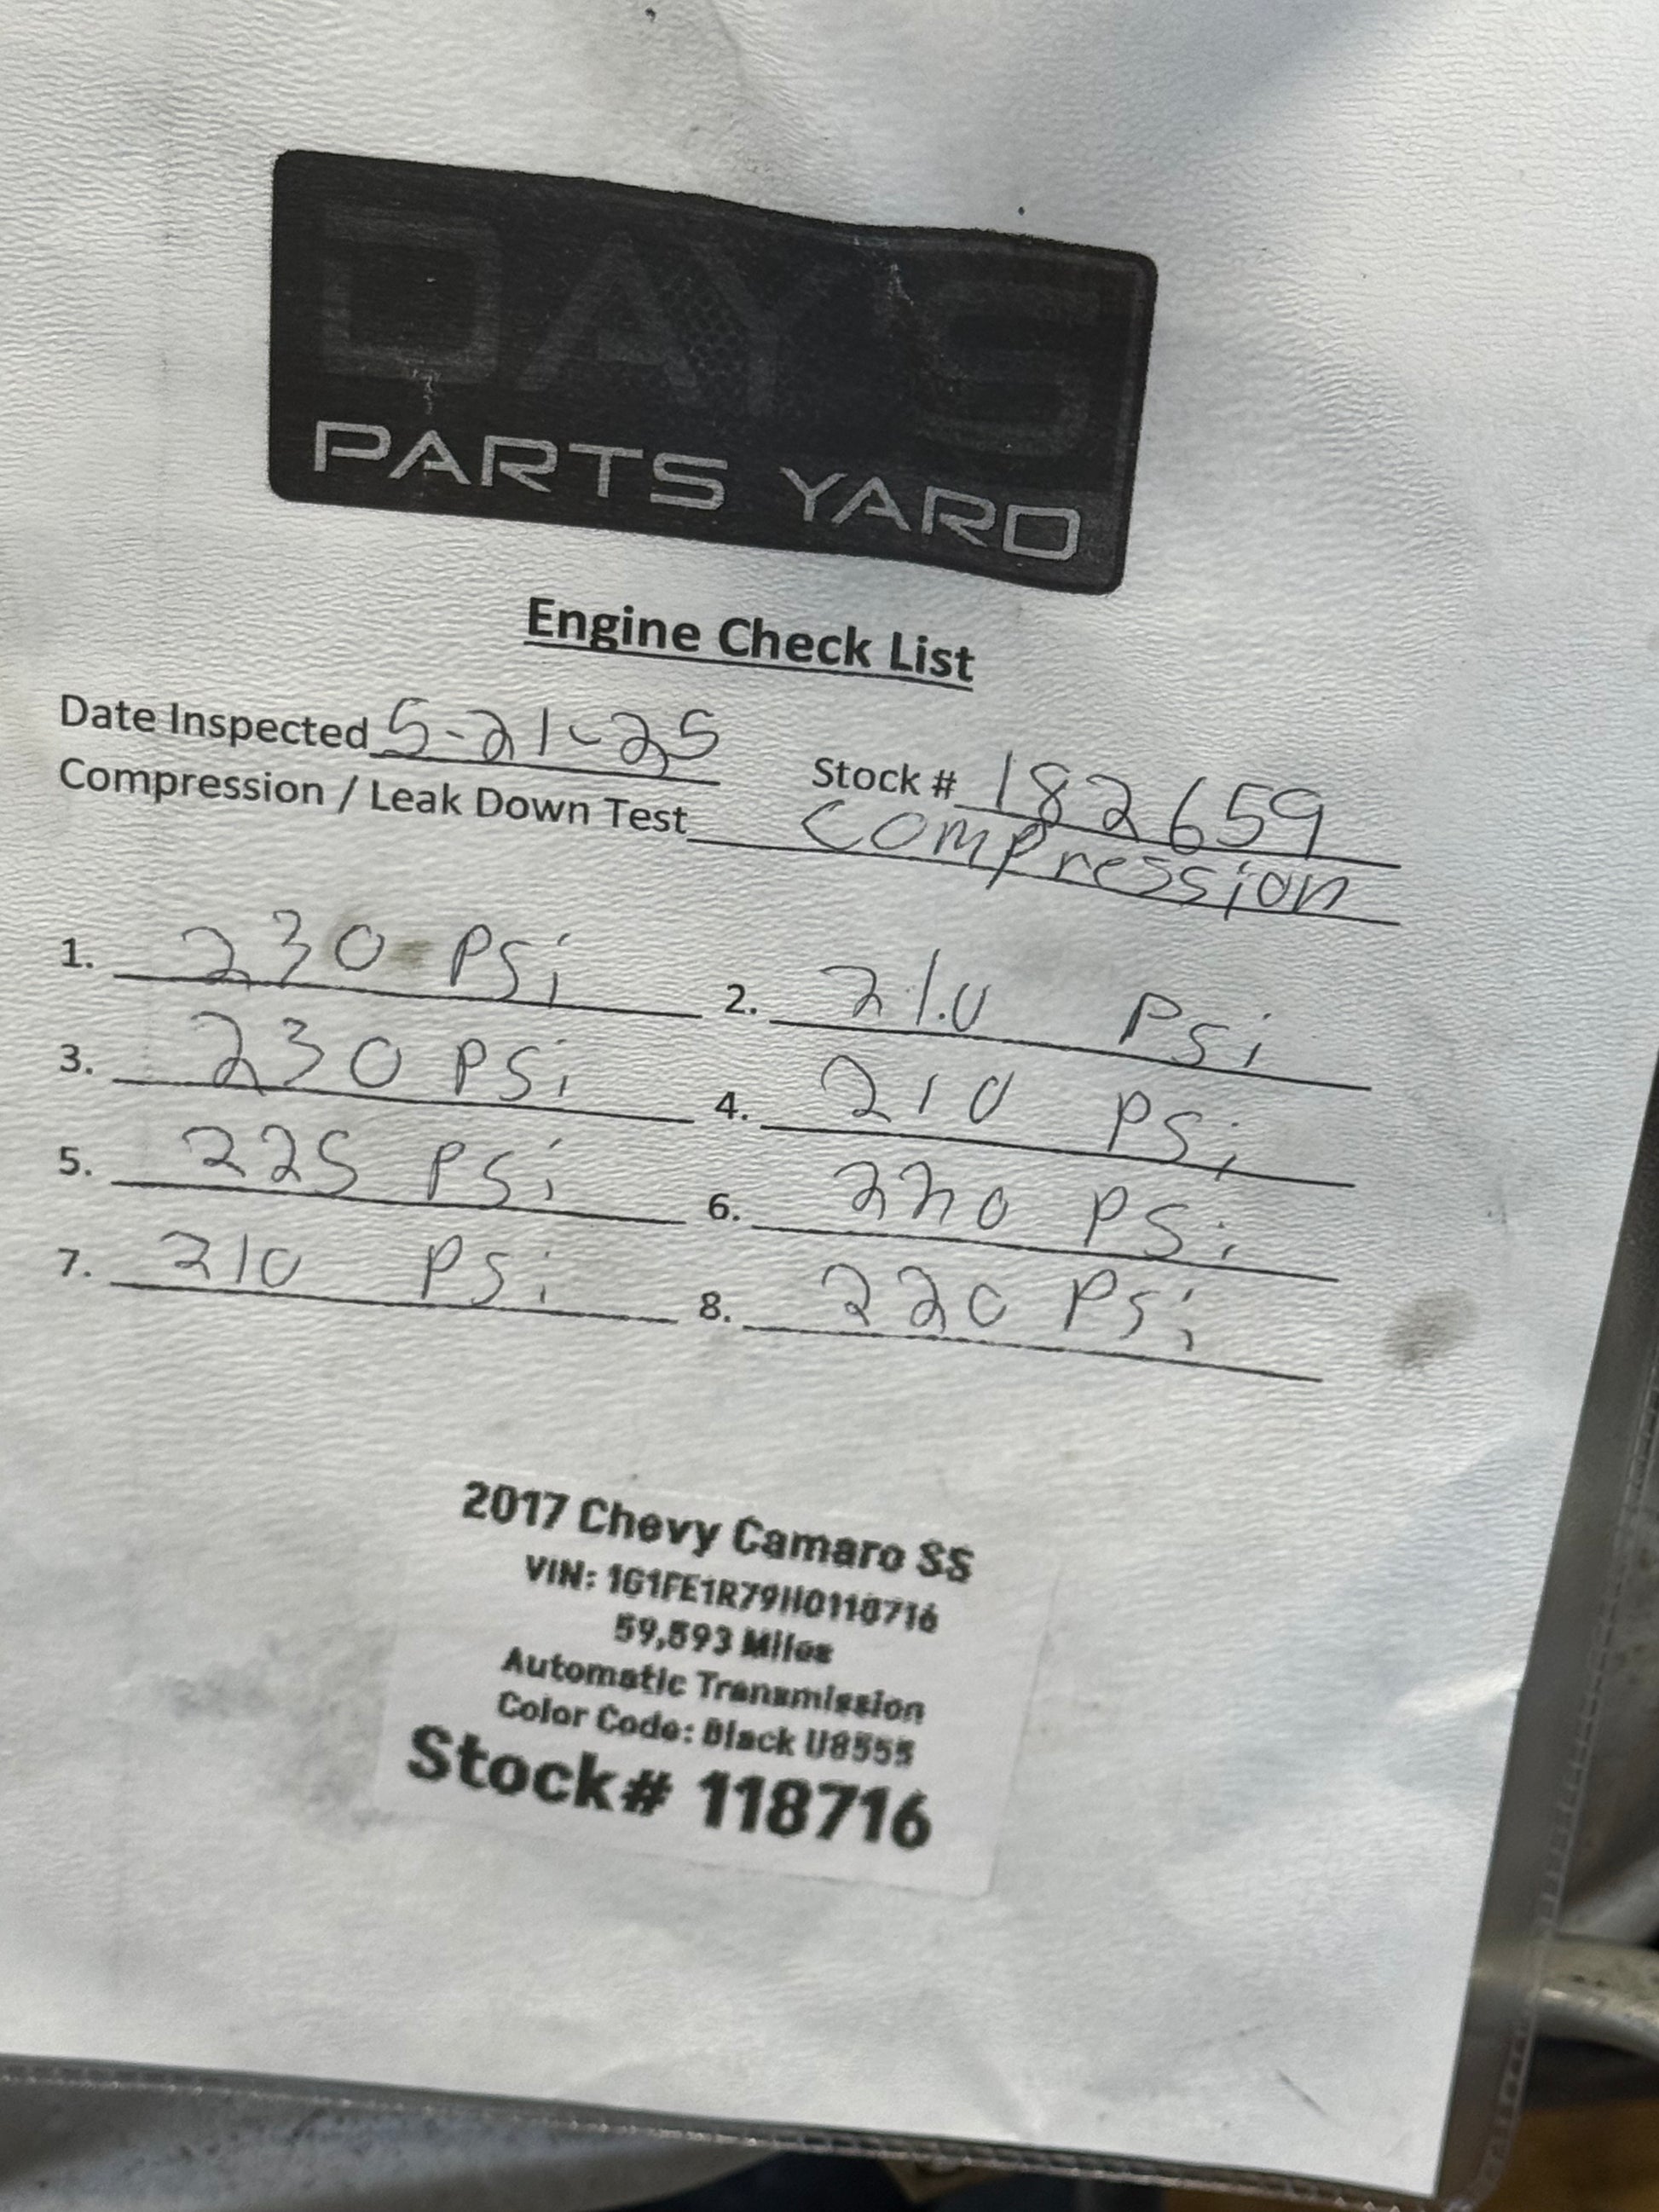 DAY'S
PARTS YARD
Engine Check List
Date Inspected 5-21-25 Stock # 182659
Compression / Leak Down Test compression
1. 230 PSi 2. 210 PSi
3. 230 PSi 4. 210 PSi
5. 225 PSi 6. 220 PSi
7. 210 PSi 8. 220 PSi
2017 Chevy Camaro SS
VIN: 1G1FE1R79H0118716
59,593 Miles
Automatic Transmission
Color Code: Black U8555
Stock# 118716